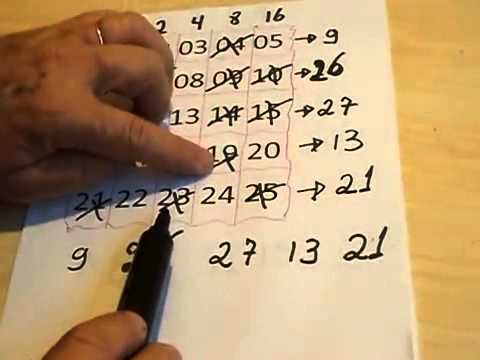 2 4 8 16
03 04 05 → 9
08 09 10 → 26
13 14 15 → 27
19 20 → 13
21 22 23 24 25 → 21
9 27 13 21